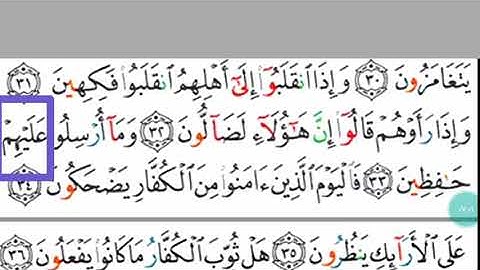 يَتَغَامَزُونَ ٣٠ وَإِذَا ٱنقَلَبُوٓا۟ إِلَىٰٓ أَهْلِهِمُ ٱنقَلَبُوا۟ فَكِهِينَ ٣١
وَإِذَا رَأَوْهُمْ قَالُوٓا۟ إِنَّ هَٰٓؤُلَآءِ لَضَآلُّونَ ٣٢ وَمَآ أُرْسِلُوا۟ عَلَيْهِمْ
حَٰفِظِينَ ٣٣ فَٱلْيَوْمَ ٱلَّذِينَ ءَامَنُوا۟ مِنَ ٱلْكُفَّارِ يَضْحَكُونَ ٣٤
عَلَى ٱلْأَرَآئِكِ يَنظُرُونَ ٣٥ هَلْ ثُوِّبَ ٱلْكُفَّارُ مَا كَانُوا۟ يَفْعَلُونَ ٣٦